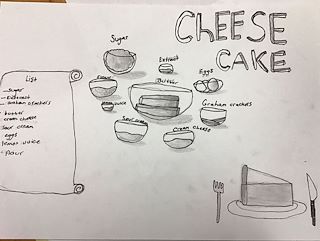 CHEESE
CAKE
Sugar
Extract
Butter
Eggs
Flour
lemon juice
Graham crackers
Sour Cream
Cream cheese
List
- Sugar
- Extract
- Graham crackers
- butter
- cream cheese
sour cream
eggs
lemon juice
- flour